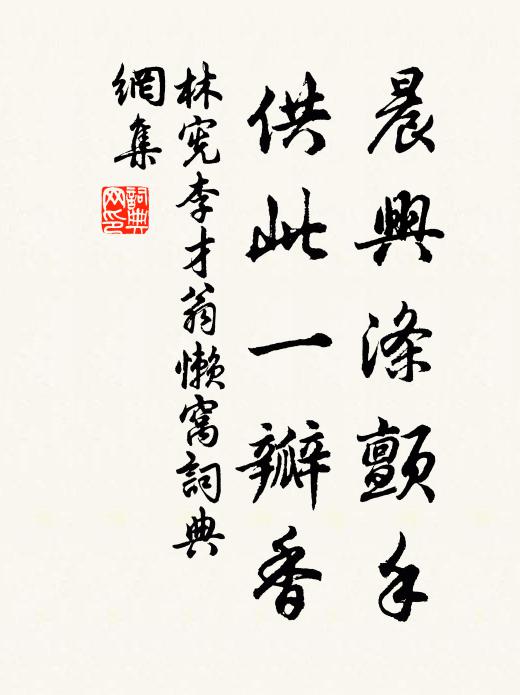 晨興滌顫手
供此一瓣香
林宪李才翁懶窩詞典
網集
詞典网印